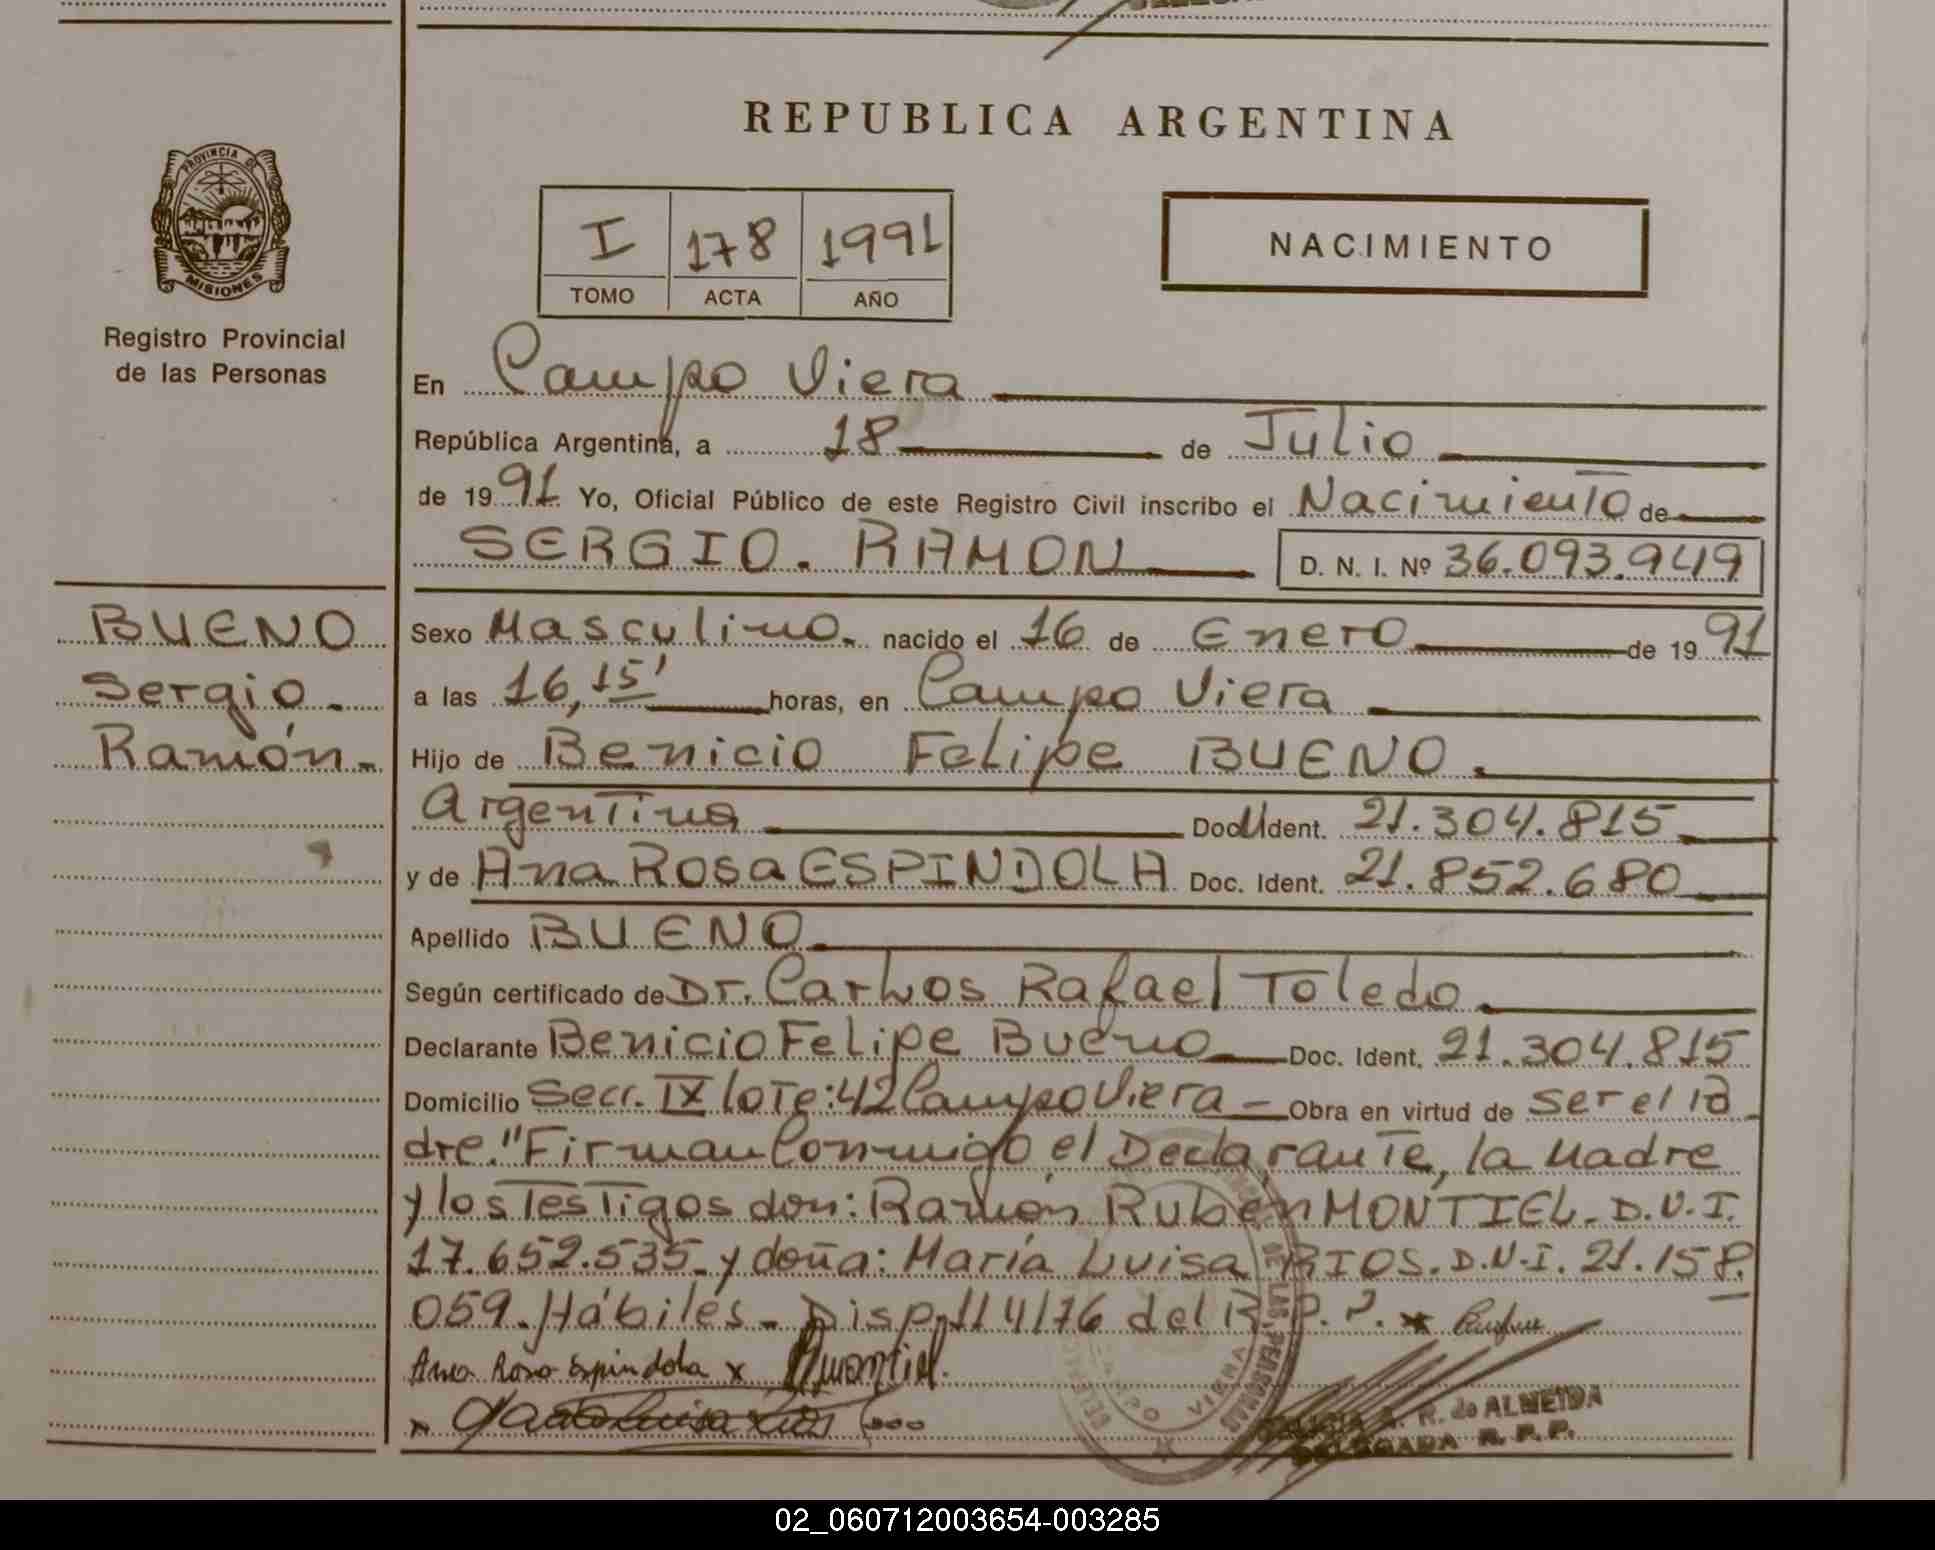 PROVINCIA DE
MISIONES
Registro Provincial
de las Personas
BUENO
Sergio -
Ramón. -
REPUBLICA ARGENTINA
I 178 1991
TOMO ACTA AÑO
NACIMIENTO
En Campo Viera
República Argentina, a 18 de Julio
de 1991 Yo, Oficial Público de este Registro Civil inscribo el Nacimiento de
SERGIO. RAMON D. N. I. Nº 36.093.949
Sexo Masculino. nacido el 16 de Enero de 1991
a las 16,15' horas, en Campo Viera
Hijo de Benicio Felipe BUENO.
Argentina Doc. Ident. 21.304.815
y de Ana Rosa ESPINDOLA Doc. Ident. 21.852.680
Apellido BUENO
Según certificado de Dr. Carlos Rafael Toledo
Declarante Benicio Felipe Bueno Doc. Ident. 21.304.815
Domicilio Secc. IX lote: 42 Campo Viera - Obra en virtud de ser el Pa
dre." Firman Conmigo el Declarante, la Madre
y los Testigos don: Ramón Ruben MONTIEL. D.N.I.
17.652.535. y doña: María Luisa RIOS. D.N.I. 21.158.
059. Hábiles. - Disp. 114/76 del R.P.P. x
Ana Rosa Espindola x RMontiel.
x
A. R. de ALMEIDA
DELEGADA R. P. P.
DE LAS PERSONAS
VIERA
02_060712003654-003285